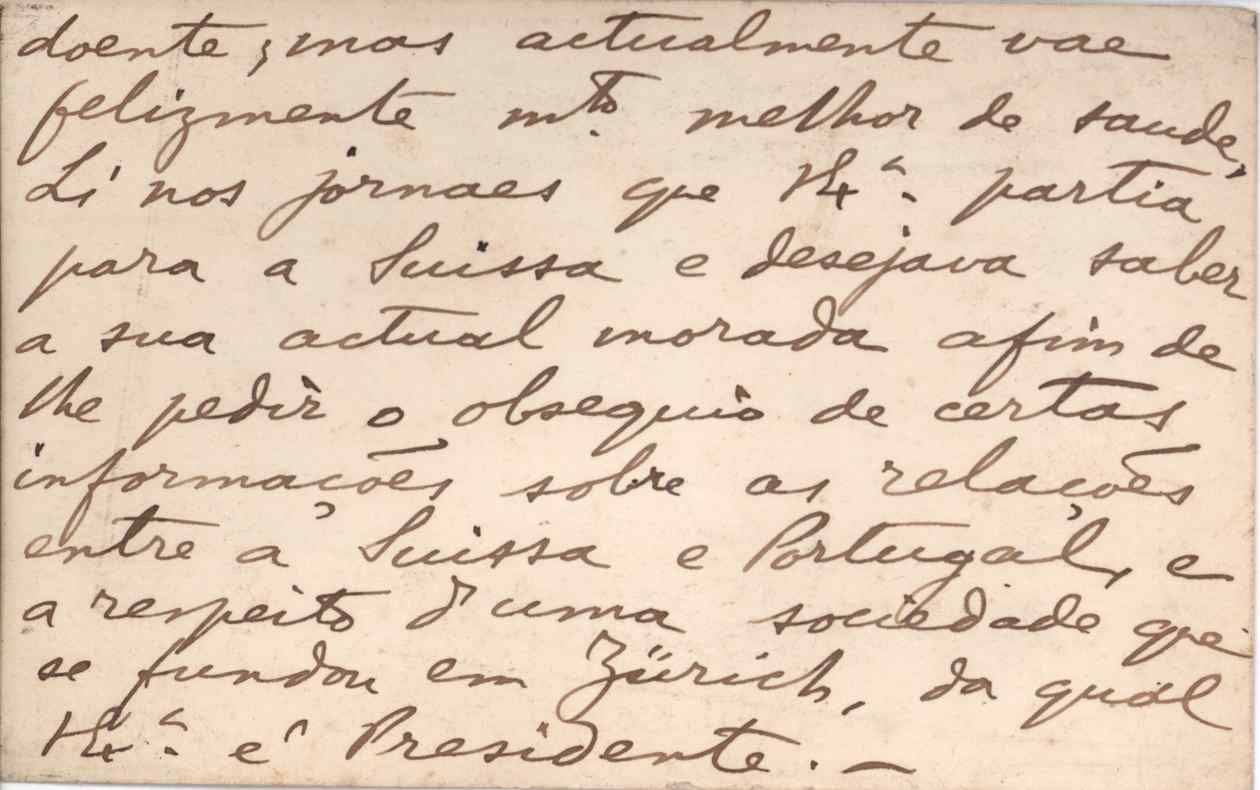 doente; mas actualmente vae
felizmente mto. melhor de saude,
Li nos jornaes que V. Exª. partia
para a Suissa e desejava saber
a sua actual morada afim de
lhe pedir o obsequio de certas
informações sobre as relações
entre a Suissa e Portugal, e
a respeito d'uma sociedade que
se fundou em Zürich, da qual
V. Exª. é Presidente. —